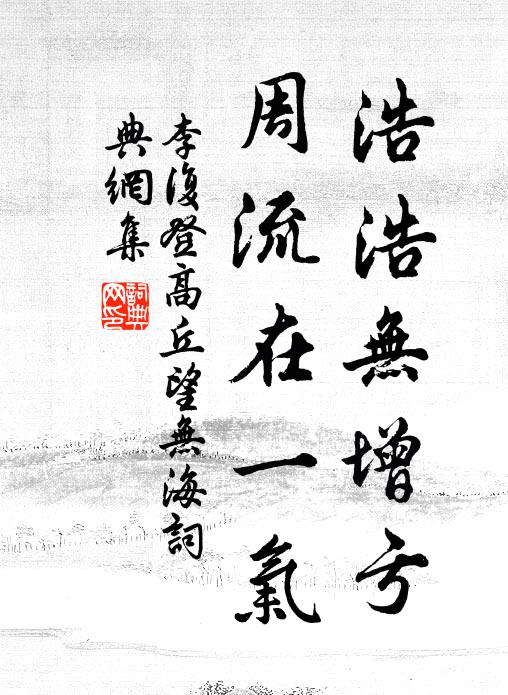 浩浩無增亏
周流在一氣
李復登高丘望無海詞
典網集
詞典
网印